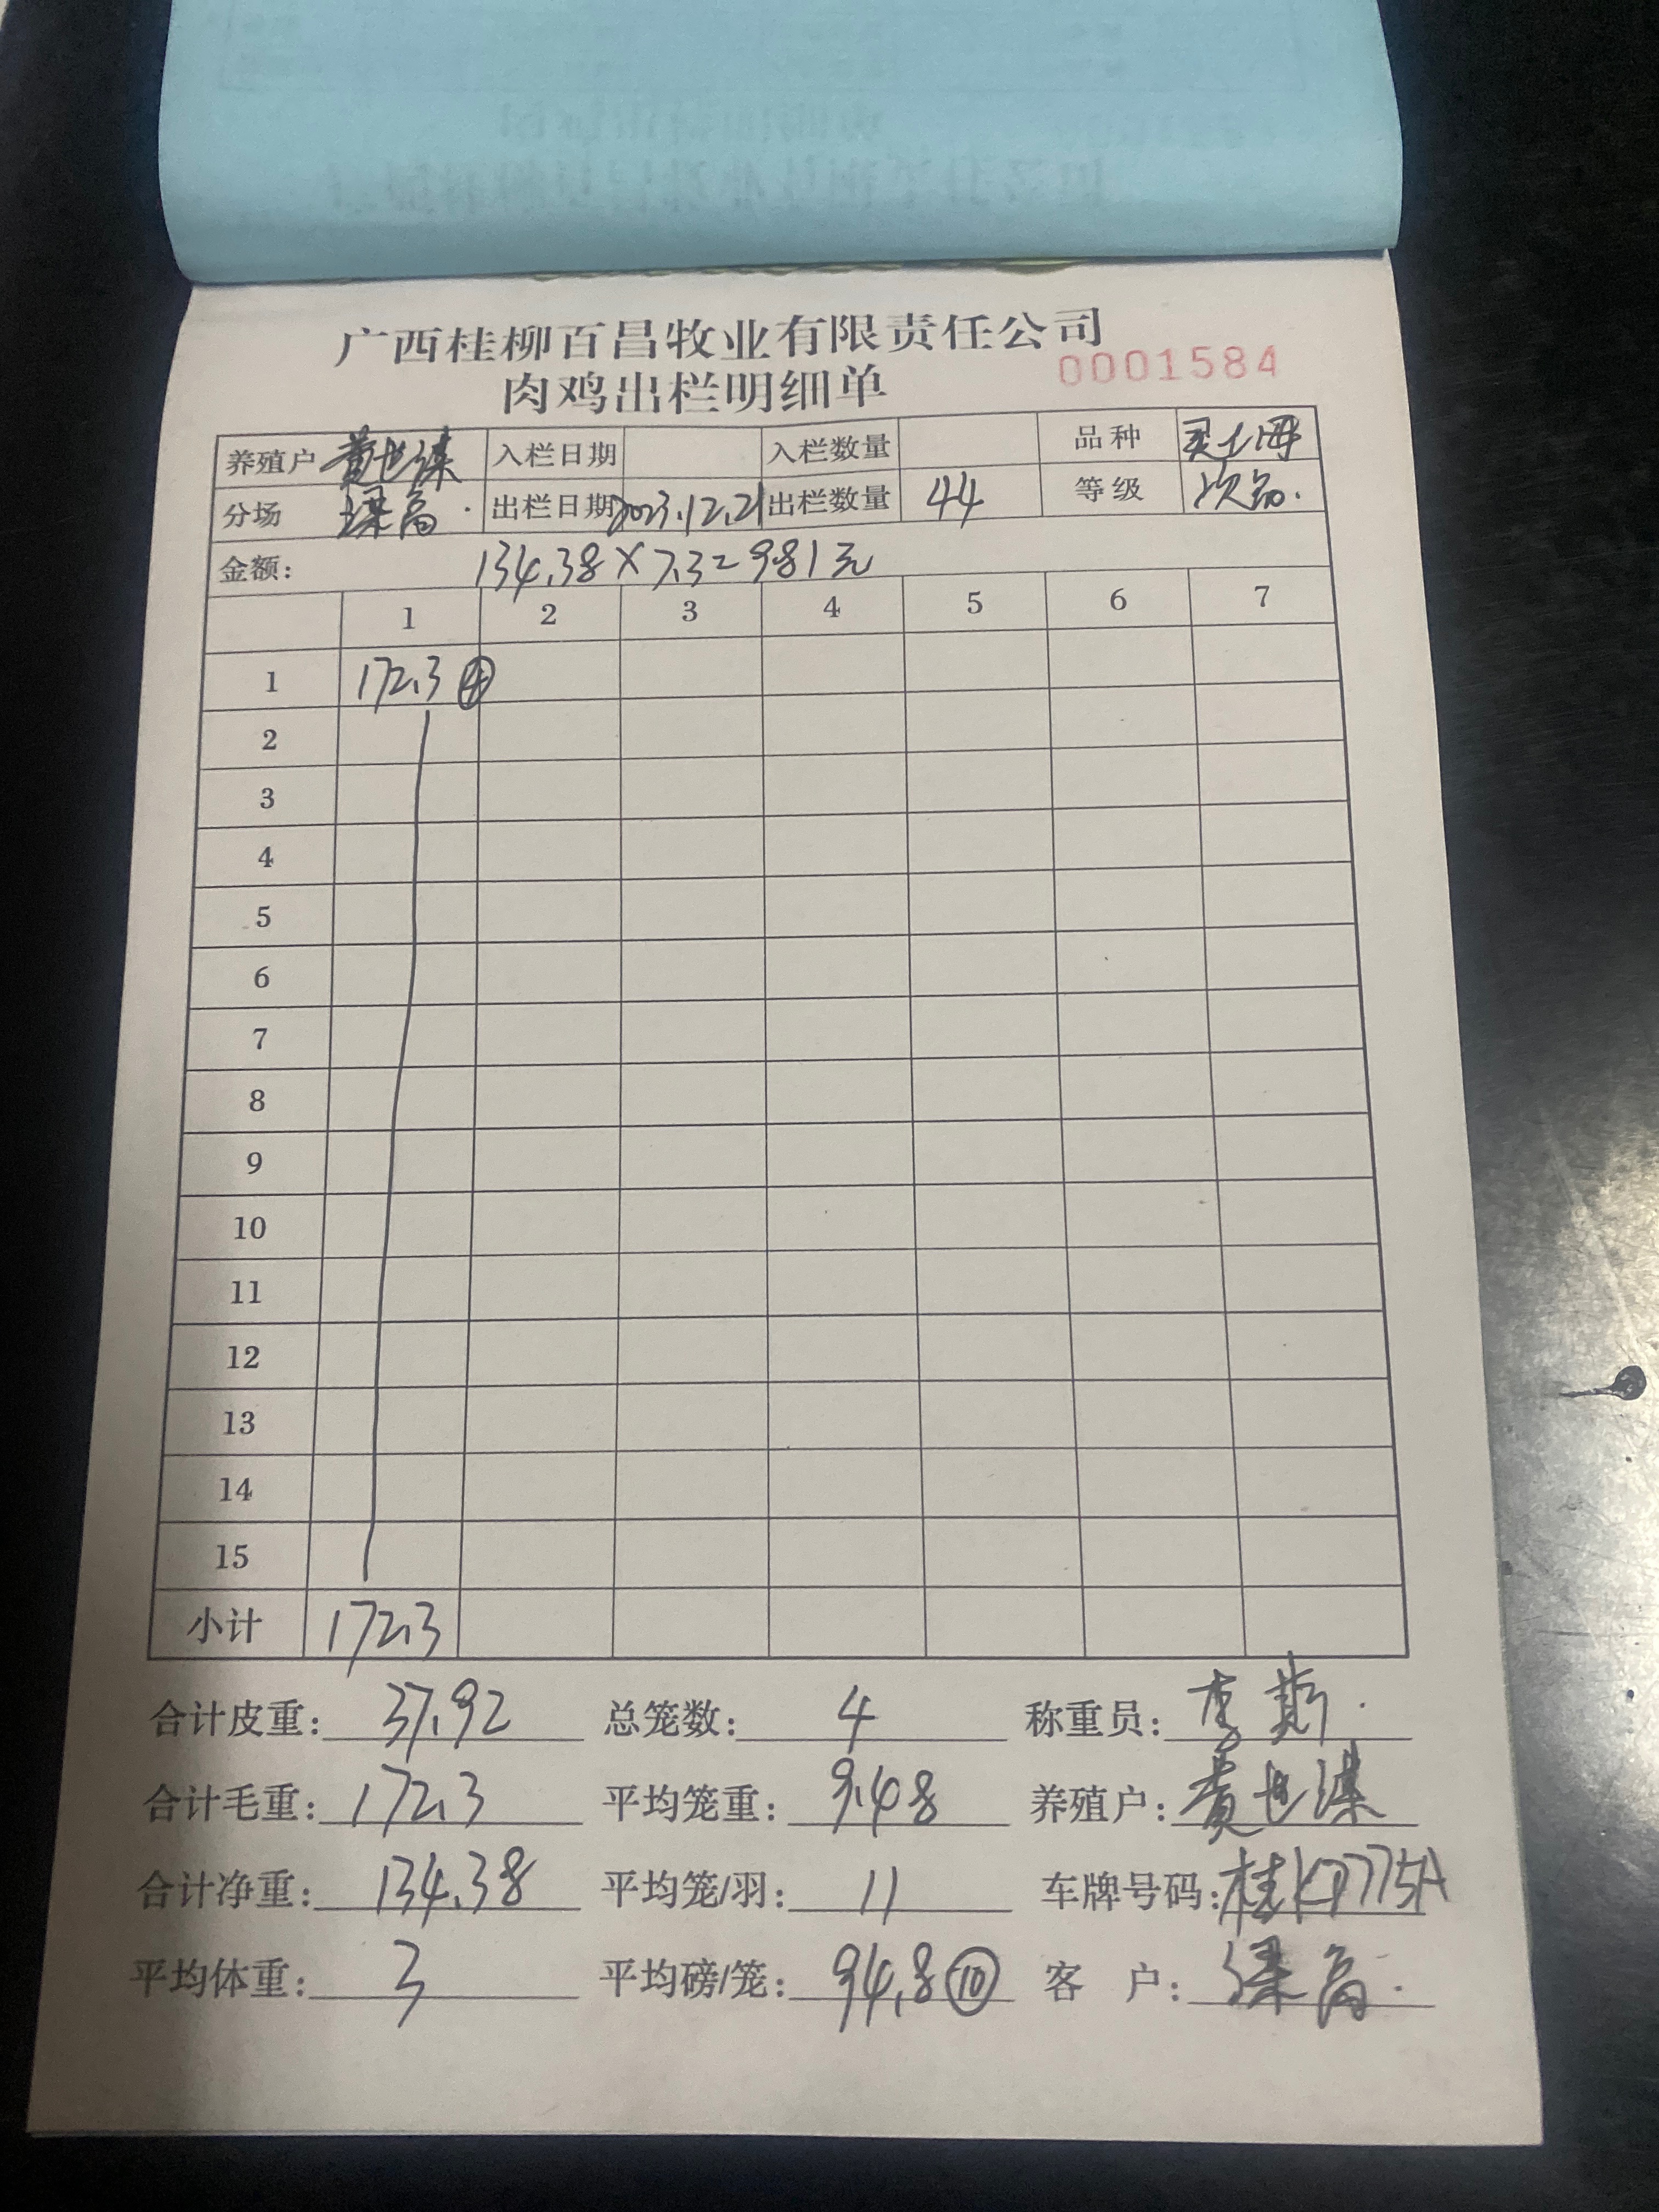 广西桂柳百昌牧业有限责任公司
0001584
肉鸡出栏明细单
养殖户 黄世谋 入栏日期 入栏数量 品种
分场 梁高 出栏日期 2023.12.21 出栏数量 44 等级 次品.
金额: 134.38×7.3=981元
1 2 3 4 5 6 7
1 172.3 ④
2
3
4
5
6
7
8
9
10
11
12
13
14
15
小计 172.3
合计皮重: 37.92 总笼数: 4 称重员: 李斯.
合计毛重: 172.3 平均笼重: 9.48 养殖户: 黄世谋
合计净重: 134.38 平均笼/羽: 11 车牌号码: 桂KD775A
平均体重: 3 平均磅/笼: 94.8⑩ 客户: 梁高.